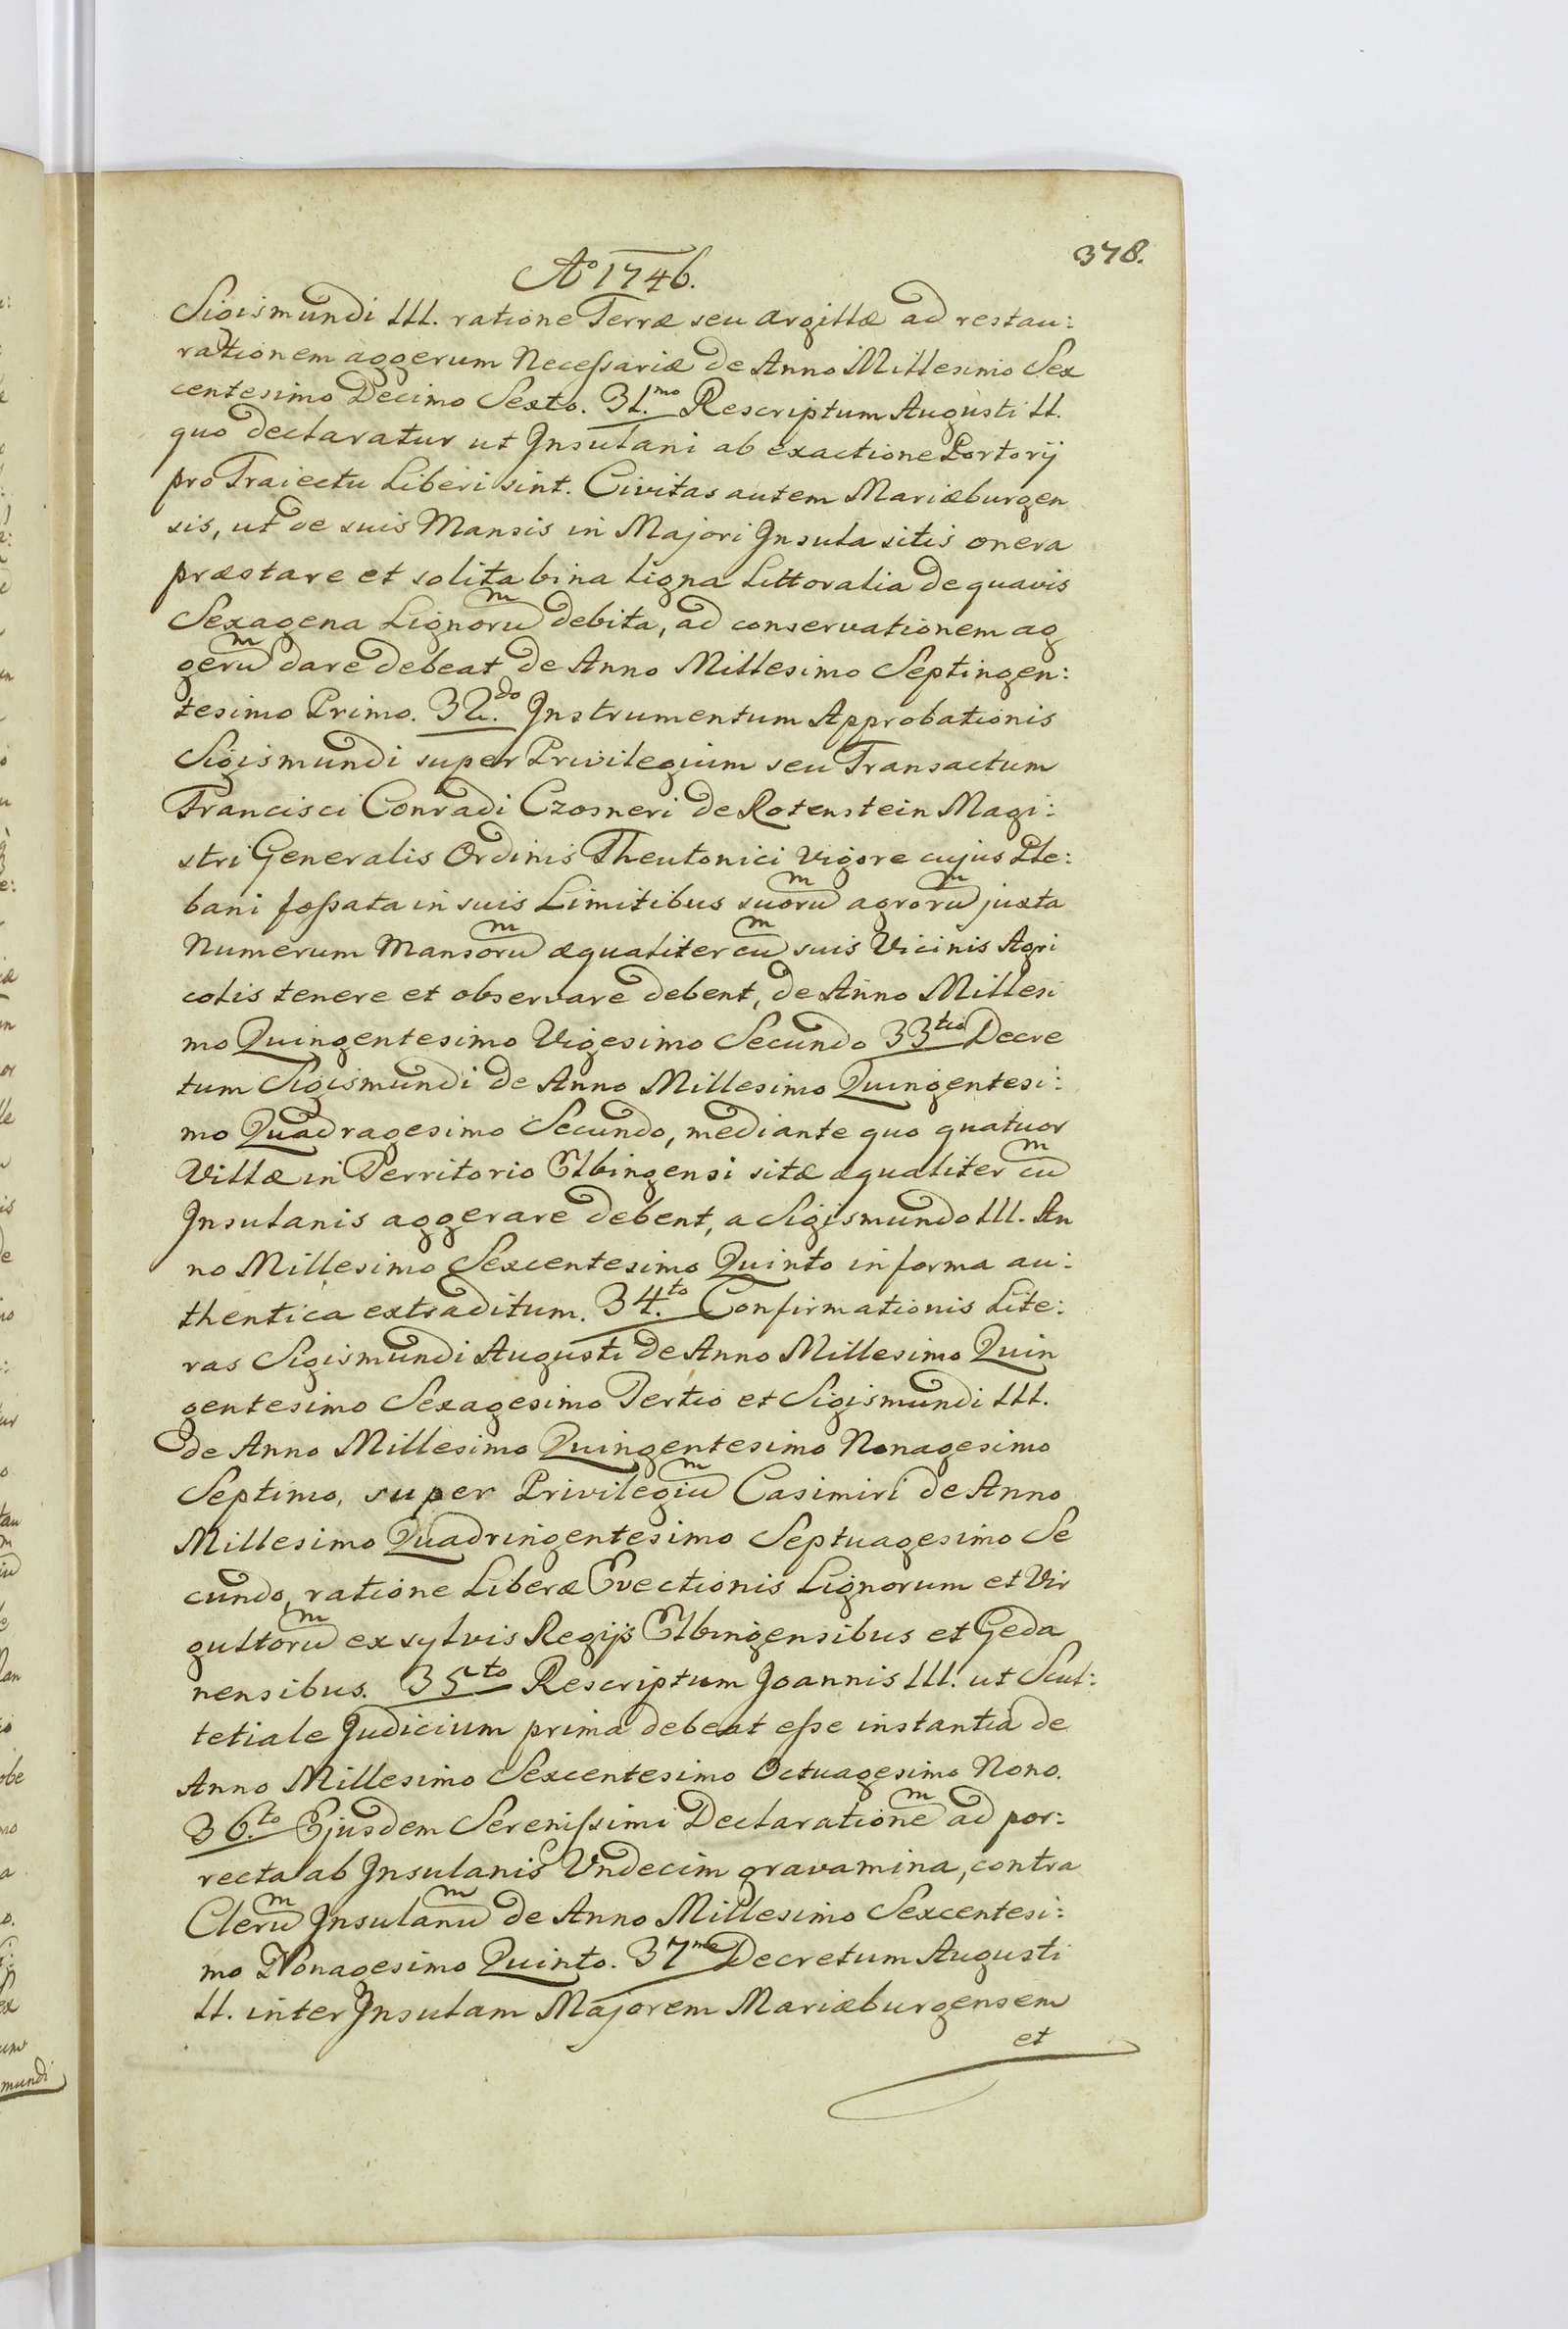 378.
Aº 1746.
Sigismundi III. ratione Terræ seu argillæ ad restau:
rationem aggerum Necessariæ de Anno Millesimo Sex
centesimo Decimo Sexto. 31.mo Rescriptum Augusti II.
quo declaratur ut Insulani ab exactione Portorij
pro Traiectu Liberi sint. Civitas autem Mariæburgen
sis, ut de suis Mansis in Majori Insula sitis onera
præstare et solita bina ligna Littoralia de quavis
Sexagena Lignorum debita, ad conservationem ag
gerum dare debeat de Anno Millesimo Septingen:
tesimo Primo. 32.do Instrumentum Approbationis
Sigismundi super Privilegium seu Transactum
Francisci Conradi Czosneri de Rotenstein Magi:
stri Generalis Ordinis Theutonici vigore cujus Ple:
bani fossata in suis Limitibus suorum agrorum juxta
Numerum Mansorum æqualiter cum suis Vicinis Agri
colis tenere et observare debent, de Anno Millesi
mo Quingentesimo Vigesimo Secundo 33tio Decre
tum Sigismundi de Anno Millesimo Quingentesi:
mo Quadragesimo Secundo, mediante quo quatuor
Villæ in Territorio Elbingensi sitæ æqualiter cum
Insulanis aggerare debent, a Sigismundo III. An
no Millesimo Sexcentesimo Quinto in forma au:
thentica extraditum. 34.to Confirmationis Lite:
ras Sigismundi Augusti de Anno Millesimo Quin
gentesimo Sexagesimo Tertio et Sigismundi III.
de Anno Millesimo Quingentesimo Nonagesimo
Septimo, super Privilegium Casimiri de Anno
Millesimo Quadringentesimo Septuagesimo Se
cundo, ratione Liberæ Evectionis Lignorum et Vir
gultorum ex sylvis Regijs Elbingensibus et Geda
nensibus. 35to Rescriptum Joannis III. ut Scul:
tetiale Judicium prima debeat esse instantia de
Anno Millesimo Sexcentesimo Octuagesimo Nono.
36.to Ejusdem Serenissimi Declarationem ad por:
recta ab Insulanis Undecim gravamina, contra
Clerum Insulanum de Anno Millesimo Sexcentesi:
mo Nonagesimo Quinto. 37mo Decretum Augusti
II. inter Insulam Majorem Mariæburgensem
et